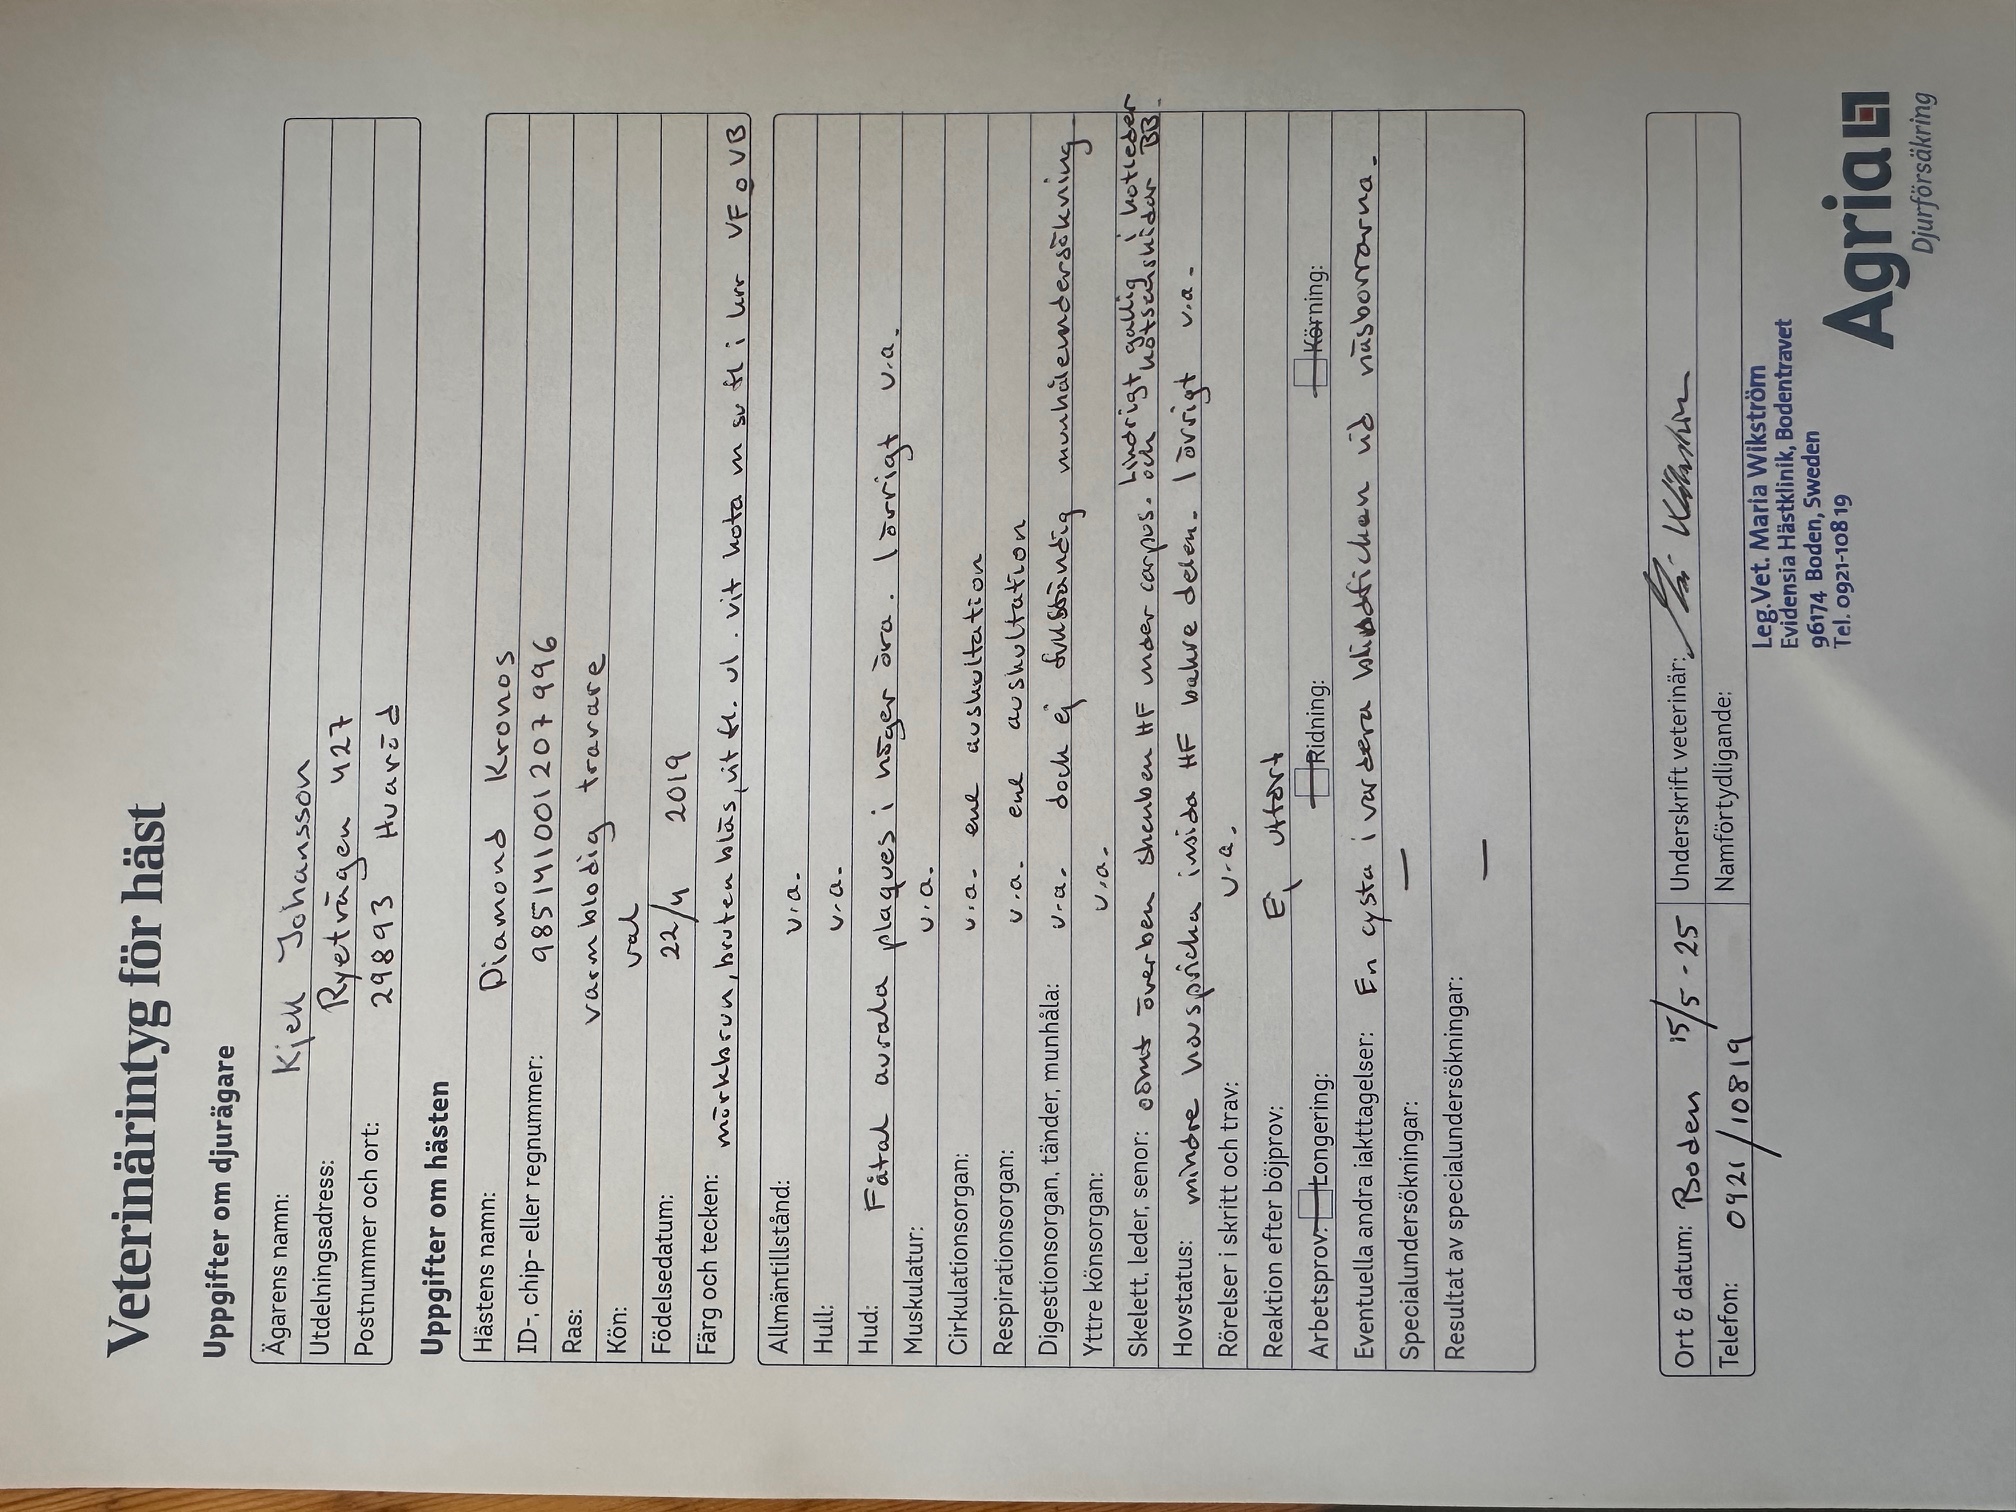 Veterinärintyg för häst
Uppgifter om djurägare
Ägarens namn: Kjell Johansson
Utdelningsadress: Ryetvägen 427
Postnummer och ort: 29893 Huaröd
Uppgifter om hästen
Hästens namn: Diamond Kronos
ID-, chip- eller regnummer: 985141001207996
Ras: varmblodig travare
Kön: val
Födelsedatum: 22/4 2019
Färg och tecken: mörkbrun, bruten bläs, vit fl. ul. vit kota m sv fl i krr VF o VB
Allmäntillstånd: v.a.
Hull: v.a.
Hud: Fåtal aurala plaques i höger öra. I övrigt v.a.
Muskulatur: v.a.
Cirkulationsorgan: v.a. enl auskultation
Respirationsorgan: v.a. enl auskultation
Digestionsorgan, tänder, munhåla: v.a. doch ej fullständig munhåleundersökning
Yttre könsorgan: v.a.
Skelett, leder, senor: oömt överben skenben HF under carpus. Lindrigt gallig i kotleder
och kotsenskidor BB.
Hovstatus: mindre hovspricka insida HF bakre delen. I övrigt v.a.
Rörelser i skritt och trav: v.a.
Reaktion efter böjprov: Ej utfört
Arbetsprov: Longering: Ridning: Körning:
Eventuella andra iakttagelser: En cysta i vardera blindfickan vid näsborrarna.
Specialundersökningar: —
Resultat av specialundersökningar: —
Ort & datum: Boden 15/5-25 Underskrift veterinär:
Telefon: 0921/10819 Namförtydligande:
Leg.Vet. Maria Wikström
Evidensia Hästklinik, Bodentravet
96174 Boden, Sweden
Tel. 0921-10819
Agria
Djurförsäkring